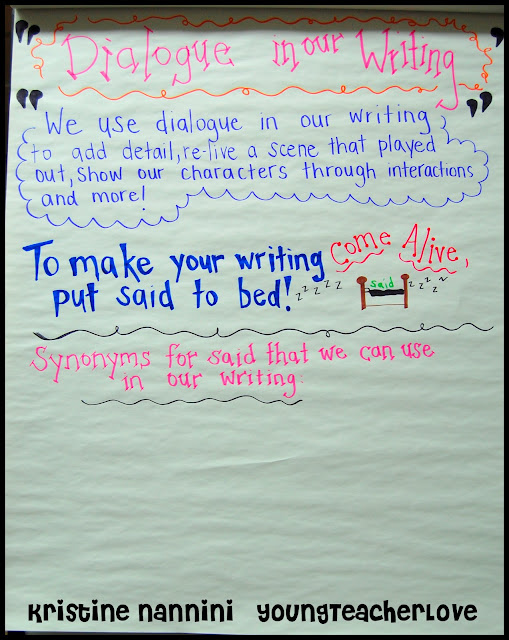 " Dialogue in our Writing "
" We use dialogue in our writing "
to add detail, re-live a scene that played
out, show our characters through interactions
and more!
To make your writing come Alive,
put said to bed! zzzzz said zzzz
Synonyms for said that we can use
in our writing:
Kristine Nannini YoungTeacherLove